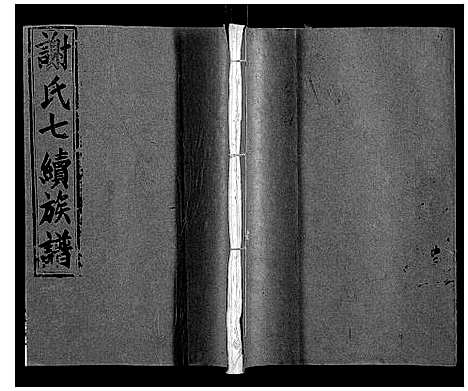 謝氏七續族譜